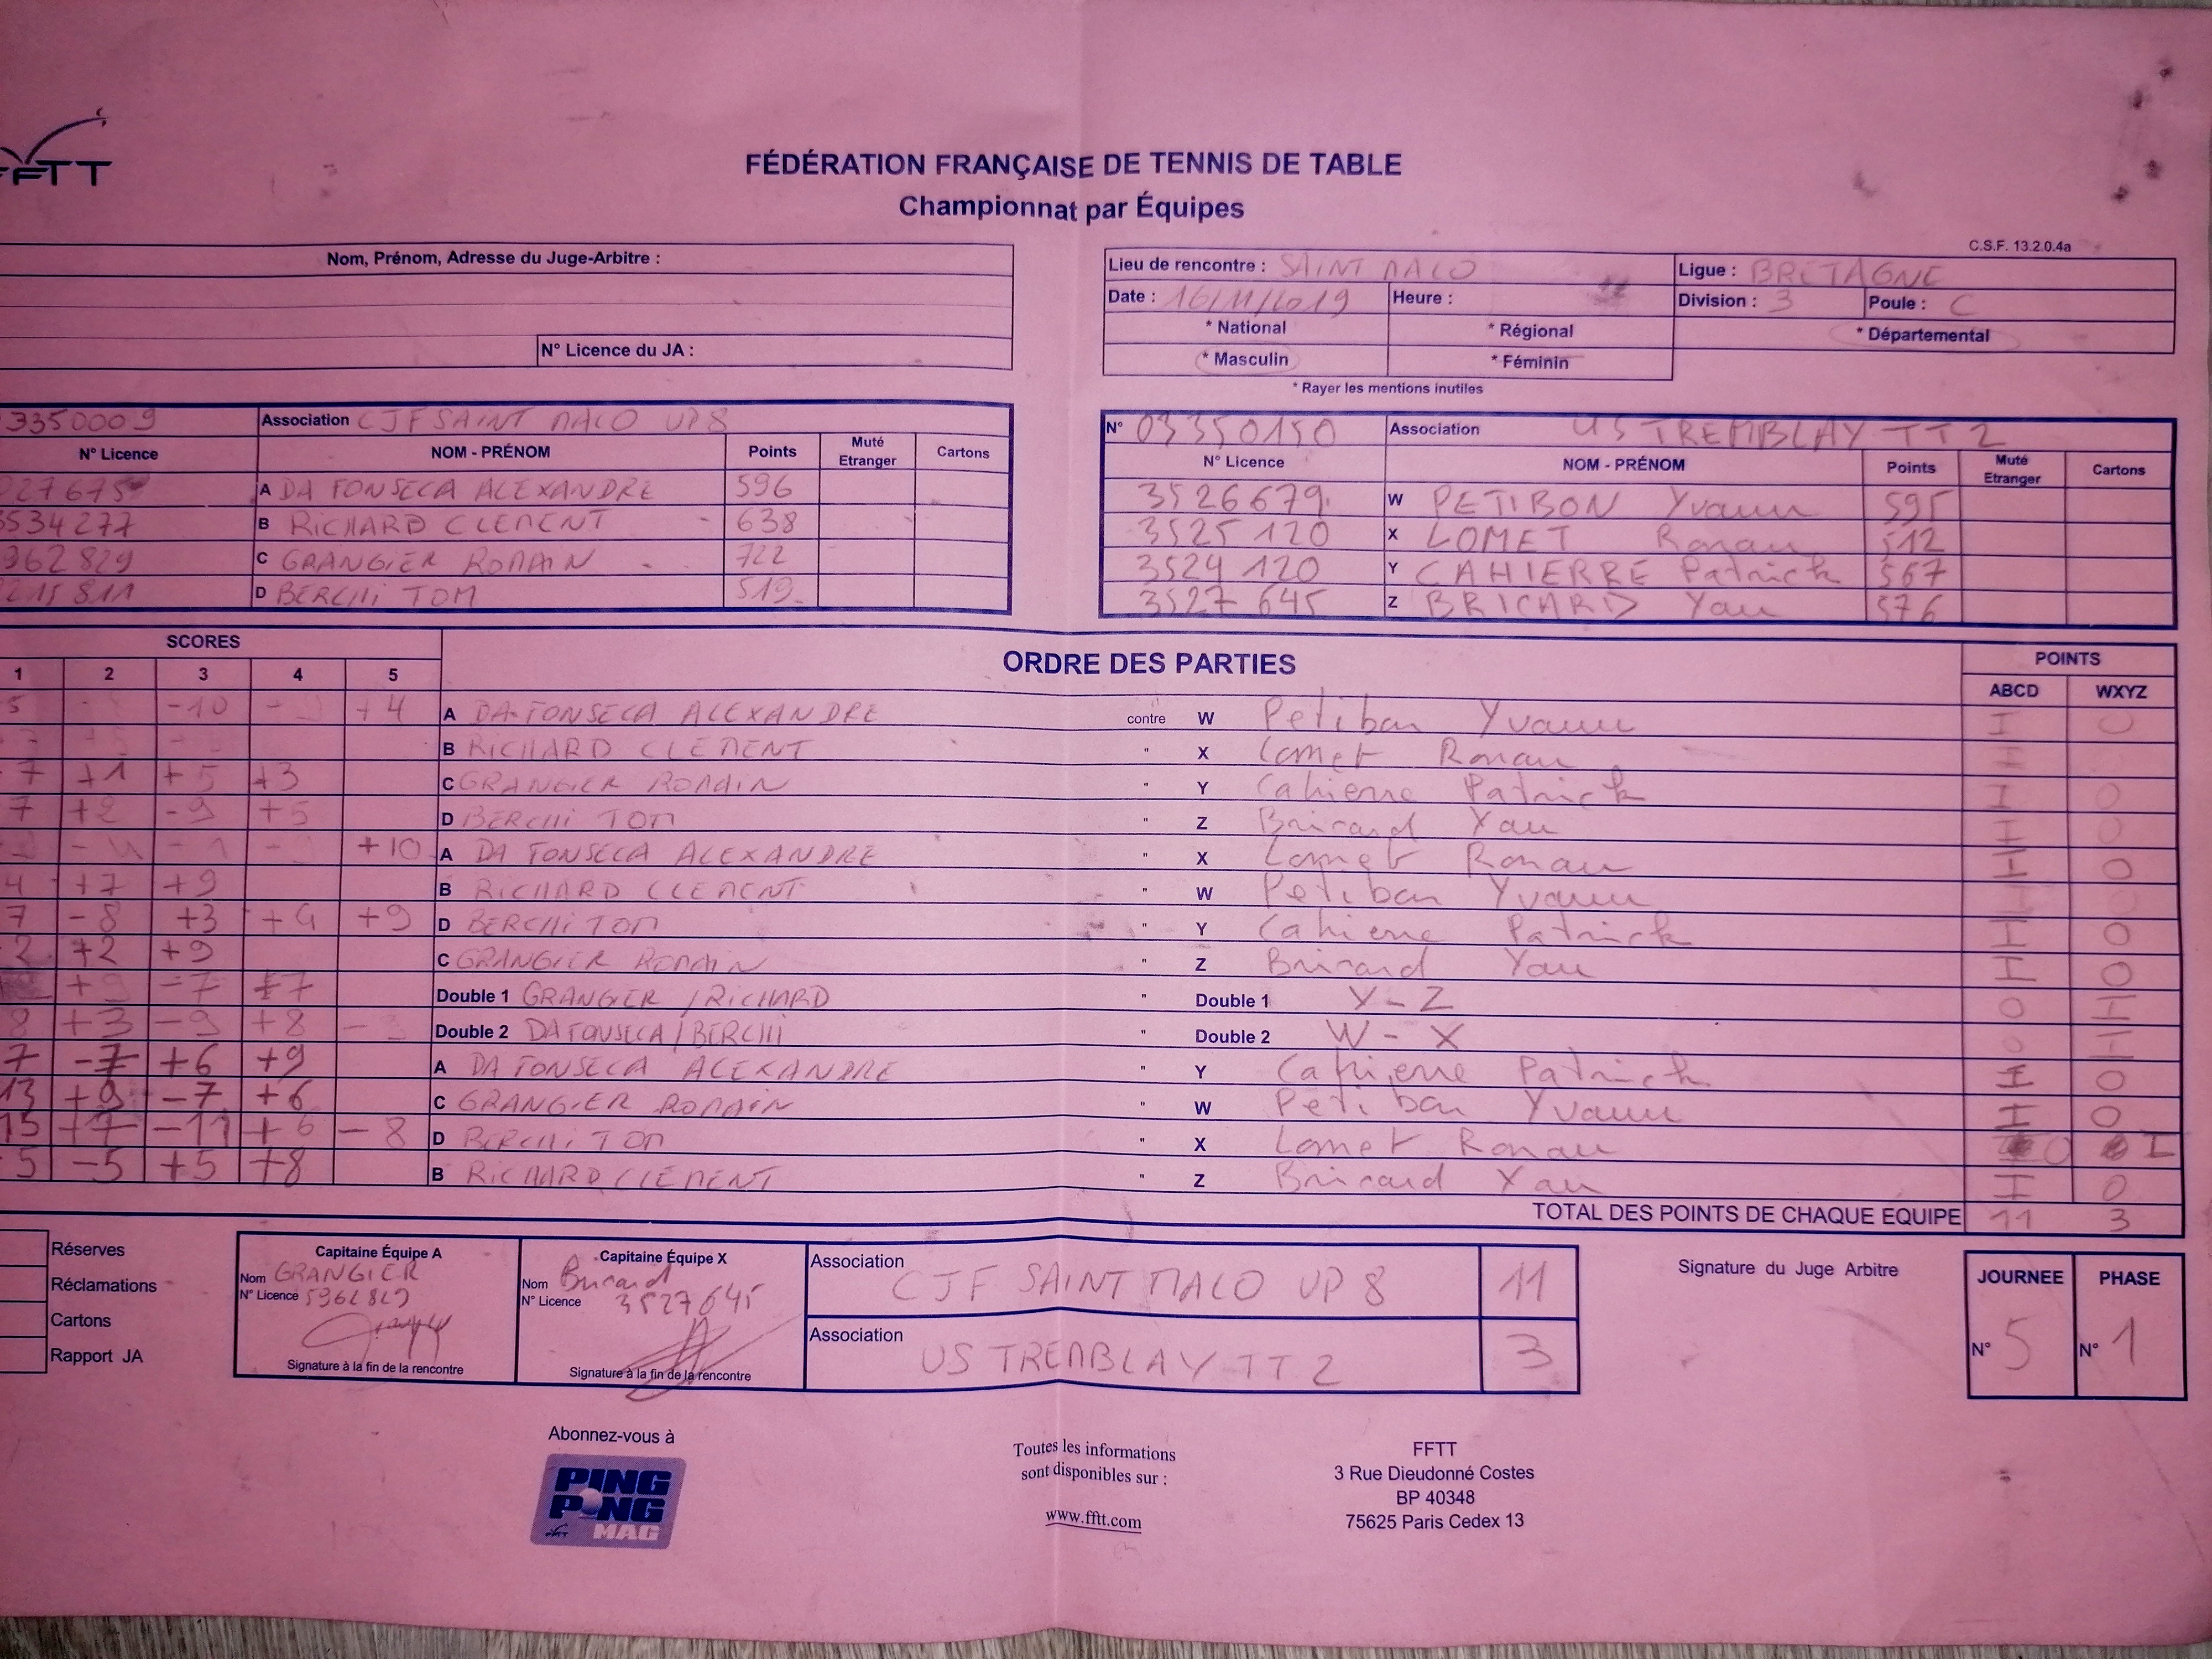 FFTT
FÉDÉRATION FRANÇAISE DE TENNIS DE TABLE
Championnat par Équipes
C.S.F. 13.2.0.4a
Nom, Prénom, Adresse du Juge-Arbitre :
N° Licence du JA :
Lieu de rencontre : SAINT MALO Ligue : BRETAGNE
Date : 16/11/2019 Heure : Division : 3 Poule : C
* National * Régional * Départemental
* Masculin * Féminin
* Rayer les mentions inutiles
3350009 Association CJF SAINT MALO UP 8
N° Licence NOM - PRÉNOM Points Muté Etranger Cartons
027675 A DA FONSECA ALEXANDRE 596
534277 B RICHARD CLEMENT 638
962829 C GRANGIER ROMAIN 722
215811 D BERCHI TOM 519
N° 03350150 Association US TREMBLAY TT 2
N° Licence NOM - PRÉNOM Points Muté Etranger Cartons
3526679 W PETIBON Yvann 595
3525 120 X LOMET Ronan 512
3524 120 Y CAHIERRE Patrick 567
3527 645 Z BRICARD Yan 576
SCORES
1 2 3 4 5
ORDRE DES PARTIES
POINTS
ABCD WXYZ
5 -10 +4 A DA FONSECA ALEXANDRE contre W Petibon Yvann I 0
B RICHARD CLEMENT " X Lomet Ronan I
7 +1 +5 +3 C GRANGIER ROMAIN " Y Cahierre Patrick I 0
7 +2 -9 +5 D BERCHI TOM " Z Bricard Yan I 0
+10 A DA FONSECA ALEXANDRE " X Lomet Ronan I 0
4 +7 +9 B RICHARD CLEMENT " W Petibon Yvann I 0
7 -8 +3 +4 +9 D BERCHI TOM " Y Cahierre Patrick I 0
2 +2 +9 C GRANGIER ROMAIN " Z Bricard Yan I 0
+9 -7 +7 Double 1 GRANGIER / RICHARD " Double 1 Y - Z 0 I
8 +3 -9 +8 Double 2 DA FONSECA / BERCHI " Double 2 W - X 0 I
7 -7 +6 +9 A DA FONSECA ALEXANDRE " Y Cahierre Patrick I 0
13 +9 -7 +6 C GRANGIER ROMAIN " W Petibon Yvann I 0
15 +7 -11 +6 -8 D BERCHI TOM " X Lomet Ronan 0 I
5 -5 +5 +8 B RICHARD CLEMENT " Z Bricard Yan I 0
TOTAL DES POINTS DE CHAQUE EQUIPE 11 3
Réserves
Réclamations
Cartons
Rapport JA
Capitaine Équipe A
Nom GRANGIER
N° Licence 5962829
Signature à la fin de la rencontre
Capitaine Équipe X
Nom Bricard
N° Licence 3527645
Signature à la fin de la rencontre
Association CJF SAINT MALO UP 8 11
Association US TREMBLAY TT 2 3
Signature du Juge Arbitre
JOURNEE PHASE
N° 5 N° 1
Abonnez-vous à
PING
PONG
MAG
Toutes les informations
sont disponibles sur :
www.fftt.com
FFTT
3 Rue Dieudonné Costes
BP 40348
75625 Paris Cedex 13